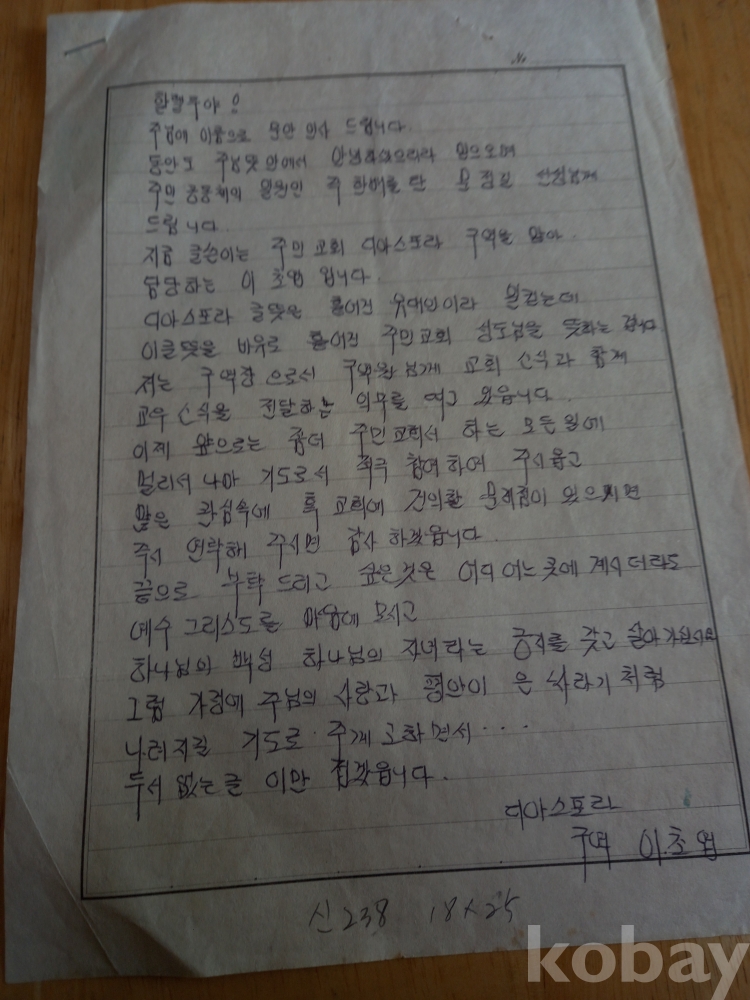 할렐루야!
주님에 이름으로 문안 인사 드립니다.
동안도 주님 뜻 안에서 안녕하셨으리라 믿으오며
주민 공동체의 일원인 주 한배를 탄 목 집실 선생님께
드립니다.
지금 글쓴이는 주민교회 디아스포라 구역을 맡아
담당하는 이초엽 입니다.
디아스포라 글뜻은 흩어진 유대인이라 일컫는데
이글뜻을 바꾸로 흩어진 주민교회 성도님을 뜻하는 겁니다
저는 구역장으로서 구역원님께 교회 소식과 함께
교우 소식을 전달하는 의무를 여고 있읍니다.
이제 앞으로는 좀더 주민교회서 하는 모든일에
멀리서 나마 기도로서 적극 참여하여 주시옵고
많은 관심속에 혹 교회에 건의할 문제점이 있으시면
주시 연락해 주시면 감사 하겠읍니다.
끝으로 부탁 드리고 싶은것은 어디 어느곳에 계시더라도
예수 그리스도를 마음에 모시고
하나님의 백성 하나님의 자녀라는 긍지를 갖고 살아가십시요
그럼 가정에 주님의 사랑과 평안이 은 싸라기 처럼
나려지길 기도로 주께 고하면서 ...
두서 없는 글 이만 접겠읍니다.
디아스포라
구역 이초엽
신238 18×25
kobay